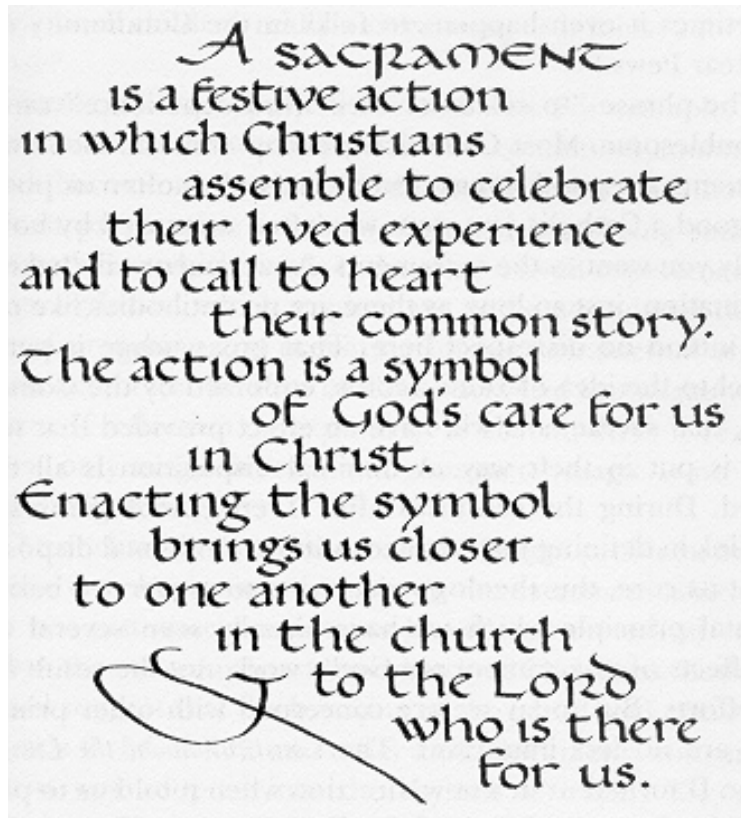 A SACRAMENT
is a festive action
in which Christians
assemble to celebrate
their lived experience
and to call to heart
their common story.
The action is a symbol
of God's care for us
in Christ.
Enacting the symbol
brings us closer
to one another
in the church
to the LORD
who is there
for us.